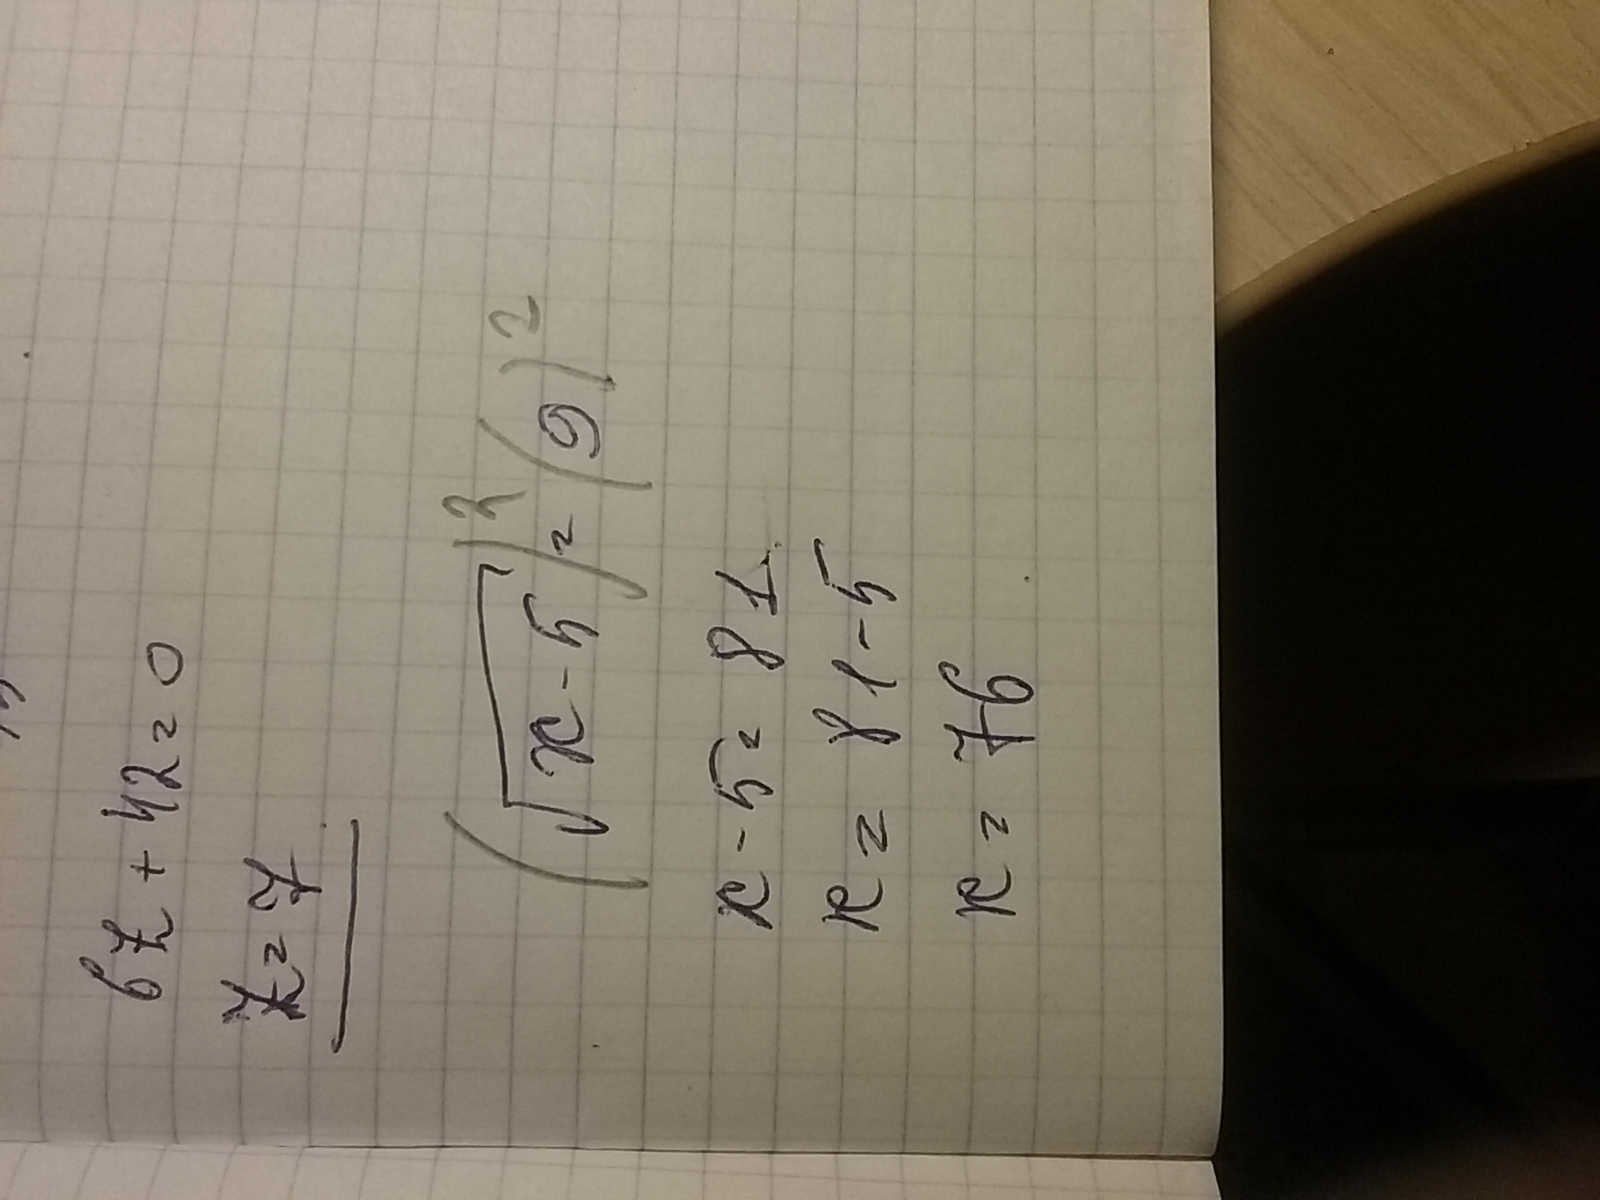 6z + 42 = 0
z = 7
(√x - 5)² = (9)²
x - 5 = 81
x = 81 - 5
x = 76